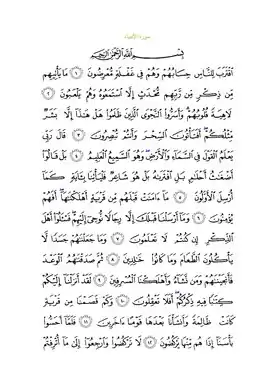 سورة الأنبياء
بِسْمِ اللَّهِ الرَّحْمَٰنِ الرَّحِيمِ
اقْتَرَبَ لِلنَّاسِ حِسَابُهُمْ وَهُمْ فِي غَفْلَةٍ مُعْرِضُونَ ١ مَا يَأْتِيهِم
مِّن ذِكْرٍ مِّن رَّبِّهِم مُّحْدَثٍ إِلَّا اسْتَمَعُوهُ وَهُمْ يَلْعَبُونَ ٢
لَاهِيَةً قُلُوبُهُمْ وَأَسَرُّوا النَّجْوَى الَّذِينَ ظَلَمُوا هَلْ هَٰذَا إِلَّا بَشَرٌ
مِّثْلُكُمْ أَفَتَأْتُونَ السِّحْرَ وَأَنتُمْ تُبْصِرُونَ ٣ قَالَ رَبِّي
يَعْلَمُ الْقَوْلَ فِي السَّمَاءِ وَالْأَرْضِ وَهُوَ السَّمِيعُ الْعَلِيمُ ٤ بَلْ قَالُوا
أَضْغَاثُ أَحْلَامٍ بَلِ افْتَرَاهُ بَلْ هُوَ شَاعِرٌ فَلْيَأْتِنَا بِآيَةٍ كَمَا
أُرْسِلَ الْأَوَّلُونَ ٥ مَا آمَنَتْ قَبْلَهُم مِّن قَرْيَةٍ أَهْلَكْنَاهَا أَفَهُمْ
يُؤْمِنُونَ ٦ وَمَا أَرْسَلْنَا قَبْلَكَ إِلَّا رِجَالًا نُّوحِي إِلَيْهِمْ فَاسْأَلُوا أَهْلَ
الذِّكْرِ إِن كُنتُمْ لَا تَعْلَمُونَ ٧ وَمَا جَعَلْنَاهُمْ جَسَدًا لَّا
يَأْكُلُونَ الطَّعَامَ وَمَا كَانُوا خَالِدِينَ ٨ ثُمَّ صَدَقْنَاهُمُ الْوَعْدَ
فَأَنجَيْنَاهُمْ وَمَن نَّشَاءُ وَأَهْلَكْنَا الْمُسْرِفِينَ ٩ لَقَدْ أَنزَلْنَا إِلَيْكُمْ
كِتَابًا فِيهِ ذِكْرُكُمْ أَفَلَا تَعْقِلُونَ ١٠ وَكَمْ قَصَمْنَا مِن قَرْيَةٍ
كَانَتْ ظَالِمَةً وَأَنشَأْنَا بَعْدَهَا قَوْمًا آخَرِينَ ١١ فَلَمَّا أَحَسُّوا
بَأْسَنَا إِذَا هُم مِّنْهَا يَرْكُضُونَ ١٢ لَا تَرْكُضُوا وَارْجِعُوا إِلَىٰ مَا أُتْرِفْتُمْ